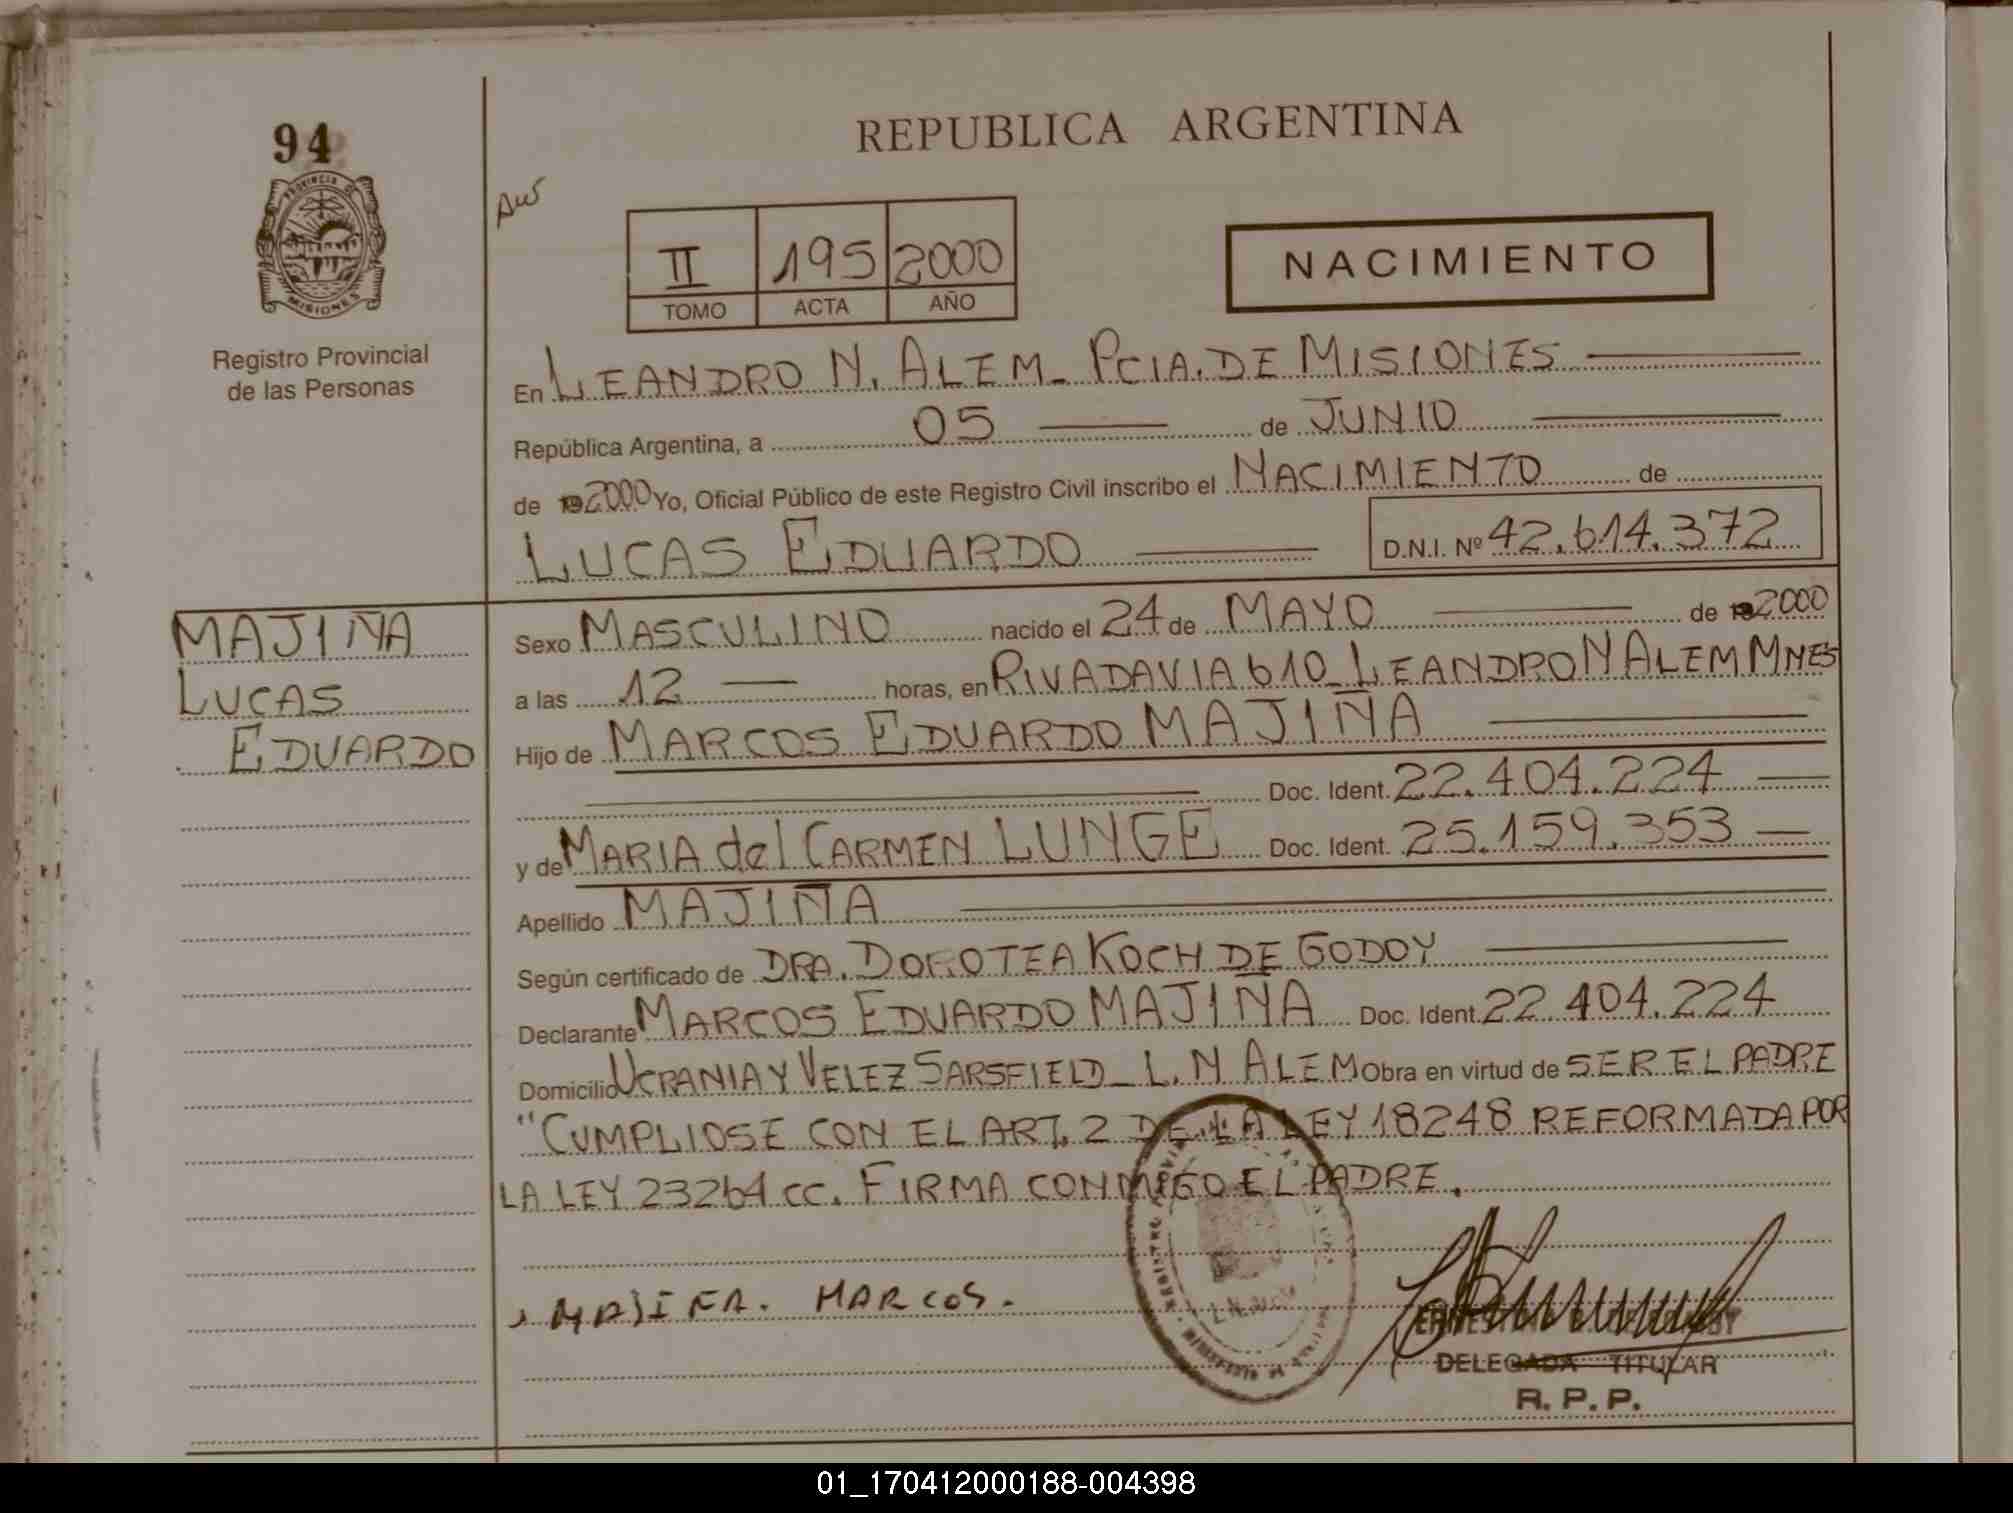 94
REPUBLICA ARGENTINA
PROVINCIA DE
MISIONES
II 195 2000
TOMO ACTA AÑO
NACIMIENTO
Registro Provincial
de las Personas
En LEANDRO N. ALEM_ PCIA. DE MISIONES
República Argentina, a 05 de JUNIO
de 192000 Yo, Oficial Público de este Registro Civil inscribo el NACIMIENTO de
LUCAS EDUARDO D.N.I. Nº 42.614.372
MAJIÑA
LUCAS
EDUARDO
Sexo MASCULINO nacido el 24 de MAYO de 192000
a las 12 horas, en RIVADAVIA 610_ LEANDRO N ALEM MNES
Hijo de MARCOS EDUARDO MAJIÑA
Doc. Ident. 22.404.224
y de MARIA del CARMEN LUNGE Doc. Ident. 25.159.353
Apellido MAJIÑA
Según certificado de DRA. DOROTEA KOCH DE GODOY
Declarante MARCOS EDUARDO MAJIÑA Doc. Ident. 22.404.224
Domicilio UCRANIA Y VELEZ SARSFIELD_ L. N ALEM Obra en virtud de SER EL PADRE
"CUMPLIOSE CON EL ART. 2 DE LA LEY 18248 REFORMADA POR
LA LEY 23264 CC. FIRMA CONMIGO EL PADRE.
MAJIÑA. MARCOS.
DELEGADA TITULAR
R. P. P.
01_170412000188-004398